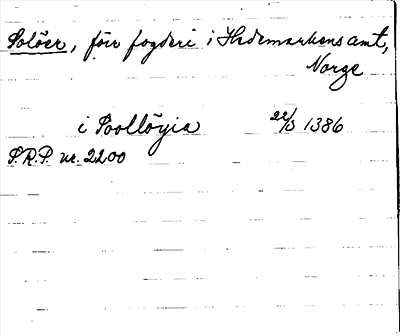 Solöer, förr fogderi i Hedemarkens amt,
Norge
i Soolløyia 22/3 1386
S.R.P. nr. 2200